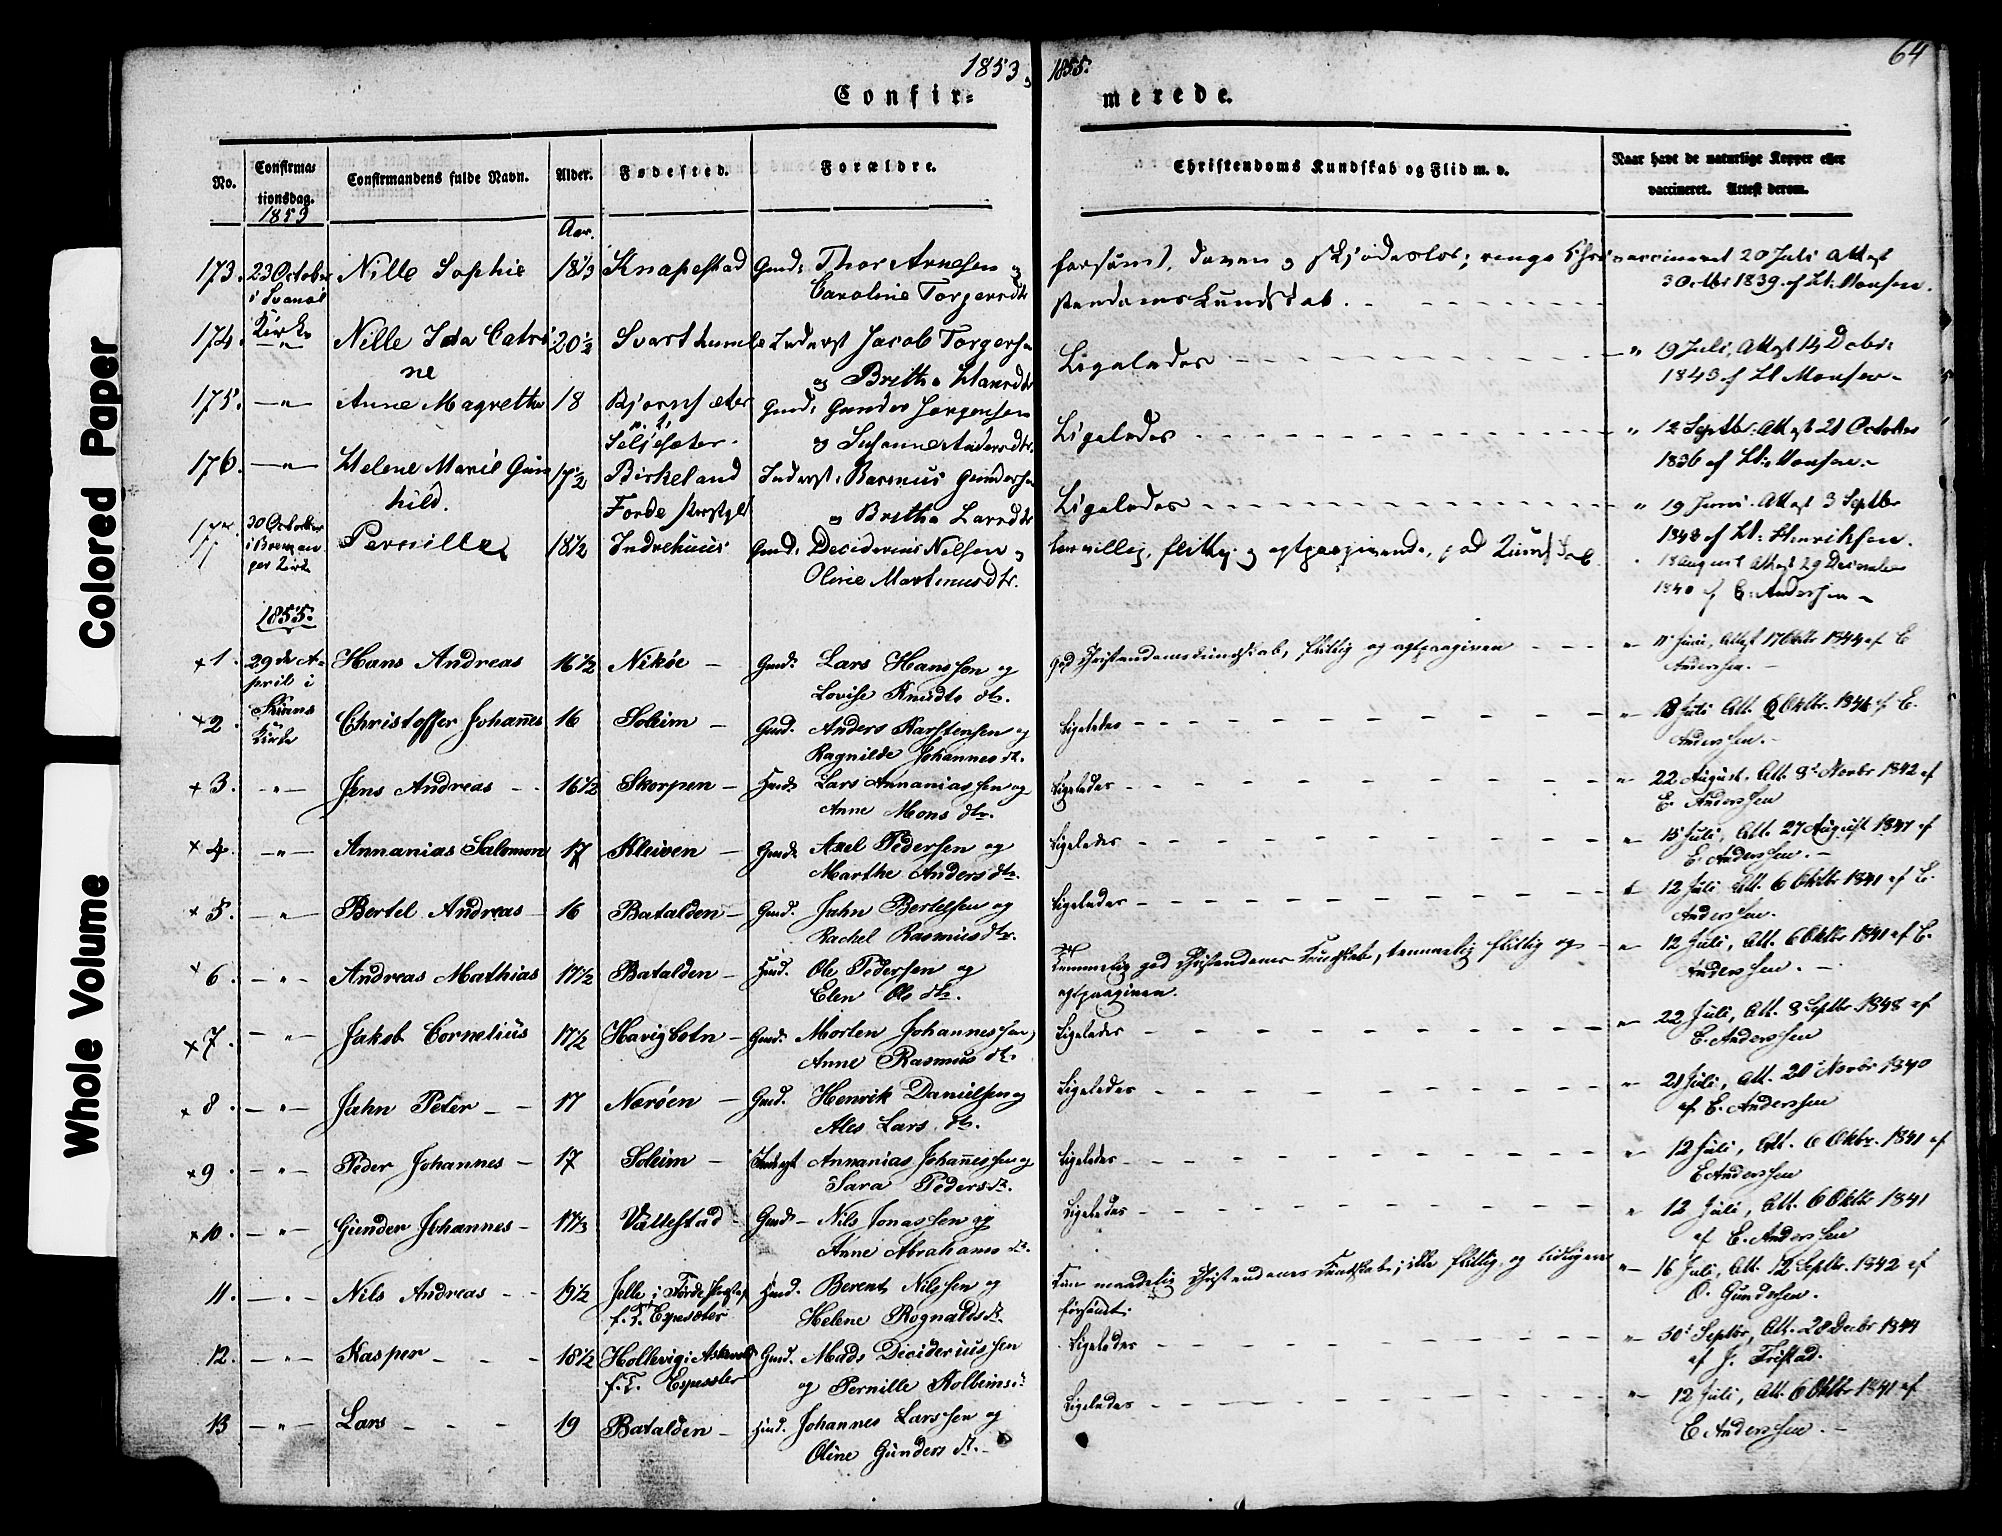 1853,
1855.
64
Confir=
merede.
No.
Confirma-
tionsdag.
1853
Confirmandens fulde Navn.
Alder.
Aar.
Fødested.
Forældre.
Christendoms Kundskab og Flid m. v.
Naar havt de naturlige Kopper eller
vaccineret. Attest derom.
173. 23 October Nille Sophie 18 1/3 Knapestad Gmd: Thor Arnesen og
i Svanøe
Caroline Torgersdtr
forsømt, doven og skjødesløs; ringe Chri-
stendomskundskab.
vaccineret 20 Juli Attest
3 Octbr 1839 af Lt: Monsen.
Kirke
174. —"— Nille Ida Catri- 20 1/2 Svarthumle Inderst Jacob Torgersen
ne
og Brithe Hansdtr
Ligeledes
" 19 Juli, Attest 14 Decbr:
1843 af Lt Monsen
175. —"— Anne Magrethe 18 Bjørnsæter Gmd: Gunder Jørgensen
n. t.
Seljesæter.
og Susanne Andersdtr:
Ligeledes
" 12 Septbr: Attest 21 October
1836 af Lt: Monsen
176. —"— Helene Marie Gun 17 1/2 Birkeland Inderst: Rasmus Gundersen
hild.
Førde Præstgld
og Brithe Larsdtr
Ligeledes
" 19 Juni Attest 3 Septbr
1848 af Lt: Henriksen.
177 30 October Pernille 18 1/2 Indrehuus Gmd: Desiderius Nilsen og
i Breman-
ger Kirke
Oline Martinusdtr.
lærvillig, flittig og agtpaagivende, god Kundskab.
18 August Attest 29 December
1840 af E: Andersen
1855.
+1. 29de A- Hans Andreas 16 1/2 Nikøe — Gmd. Lars Hanssen og
pril i
Lovise Knudts dtr.
god Christendomskundskab, flittig og agtpaagiven
"— 11 Juni, Attest 17 Oktbr 1844 af E
Anderssen.
+2. Kinns Christoffer Johannes 16 Soleim — Gmd. Anders Karstensen og
Kirke
Ragnilde Johannes dtr.
Ligeledes
"— 13 Juli Att. 2 Oktbr. 1846 af E.
Anderssen.
+3. —"— Jens Andreas 16 1/2 Skorpen — Hmd. Lars Annaniassen og
Anne Mons dtr.
Ligeledes
"— 22 August, Att. 8d Novbr 1842 af
E. Anderssen
+4. —"— Annanias Salomon 17 Kleiven — Gmd. Axel Pedersen og
Marthe Anders dtr.
Ligeledes
"— 15 Juli, Att. 27 August 1847 af
E. Anderssen.
+5. —"— Bertel Andreas 16 Batalden — Gmd. Jahn Bertelsen og
Rachel Rasmus dtr.
Ligeledes
12 Juli Att. 6 Oktbr 1841 af E.
Anderssen.
+6. —"— Andreas Mathias 17 1/2 Batalden — Hmd. Ole Pedersen og
Elen Ols dtr.
temmelig god Christendoms Kundskab, temmelig flittig og
agtpaagiven.
"— 12 Juli, Att. 6 Oktbr 1841 af E.
Anderssen.
+7. —"— Jakob Cornelius 17 1/2 Havigbotn — Gmd. Morten Johannessen,
Anne Rasmus dtr.
Ligeledes
"— 22 Juli, Att. 8 Septbr 1848 af
E. Anderssen
+8. —"— Jahn Peter 17 Nærøen — Gmd. Henrik Danielsen og
Ales Lars dtr.
Ligeledes
"— 21 Juli, Att. 20 Novbr 1840
af E. Anderssen
+9. —"— Peder Johannes — 17 Soleim — Inderst Annanias Johannessen og
Sara Pedersdtr.
Ligeledes
"— 12 Juli, Att. 6 Oktbr. 1841 af
E Anderssen
+10. —"— Gunder Johannes — 17 1/3 Vallestad Gmd. Nils Jonassen og
Anne Abrahams dtr.
Ligeledes
" 12 Juli, Att. 6 Oktbr 1841
af E. Anderssen
11. —"— Nils Andreas 19 1/2 Jelle i Førde Prstgj. Hmd. Berent Nilssen og
f. T. Espesæter
Helene Rognalds dtr.
Kun maadelig Christendoms Kundskab; ikke flittig, og tidligere
forsømt.
"— 16 Juli, Att. 12 Septbr. 1842 af
O. Gundersen.
12. —"— Kasper 18 1/2 Hollevig i Askevold Gmd. Mads Decideriussen
f. T. Espesæter
og Pernille Kolbeins dtr
Ligeledes
"— 30t Septbr, Att. 28 Decbr 1844
af J. Tristad.
13 —"— Lars 19 Batalden — Hmd. Johannes Larssen og
Oline Gunders dtr.
Ligeledes
"— 12 Juli, Att. 6 Oktbr 1841 af
E Anderssen.
Colored Paper
Whole Volume